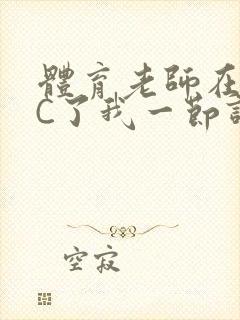 體育老師在
C了我一節
空寂